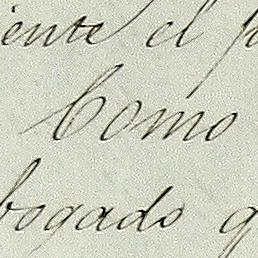 iente el p
Como
bogado q